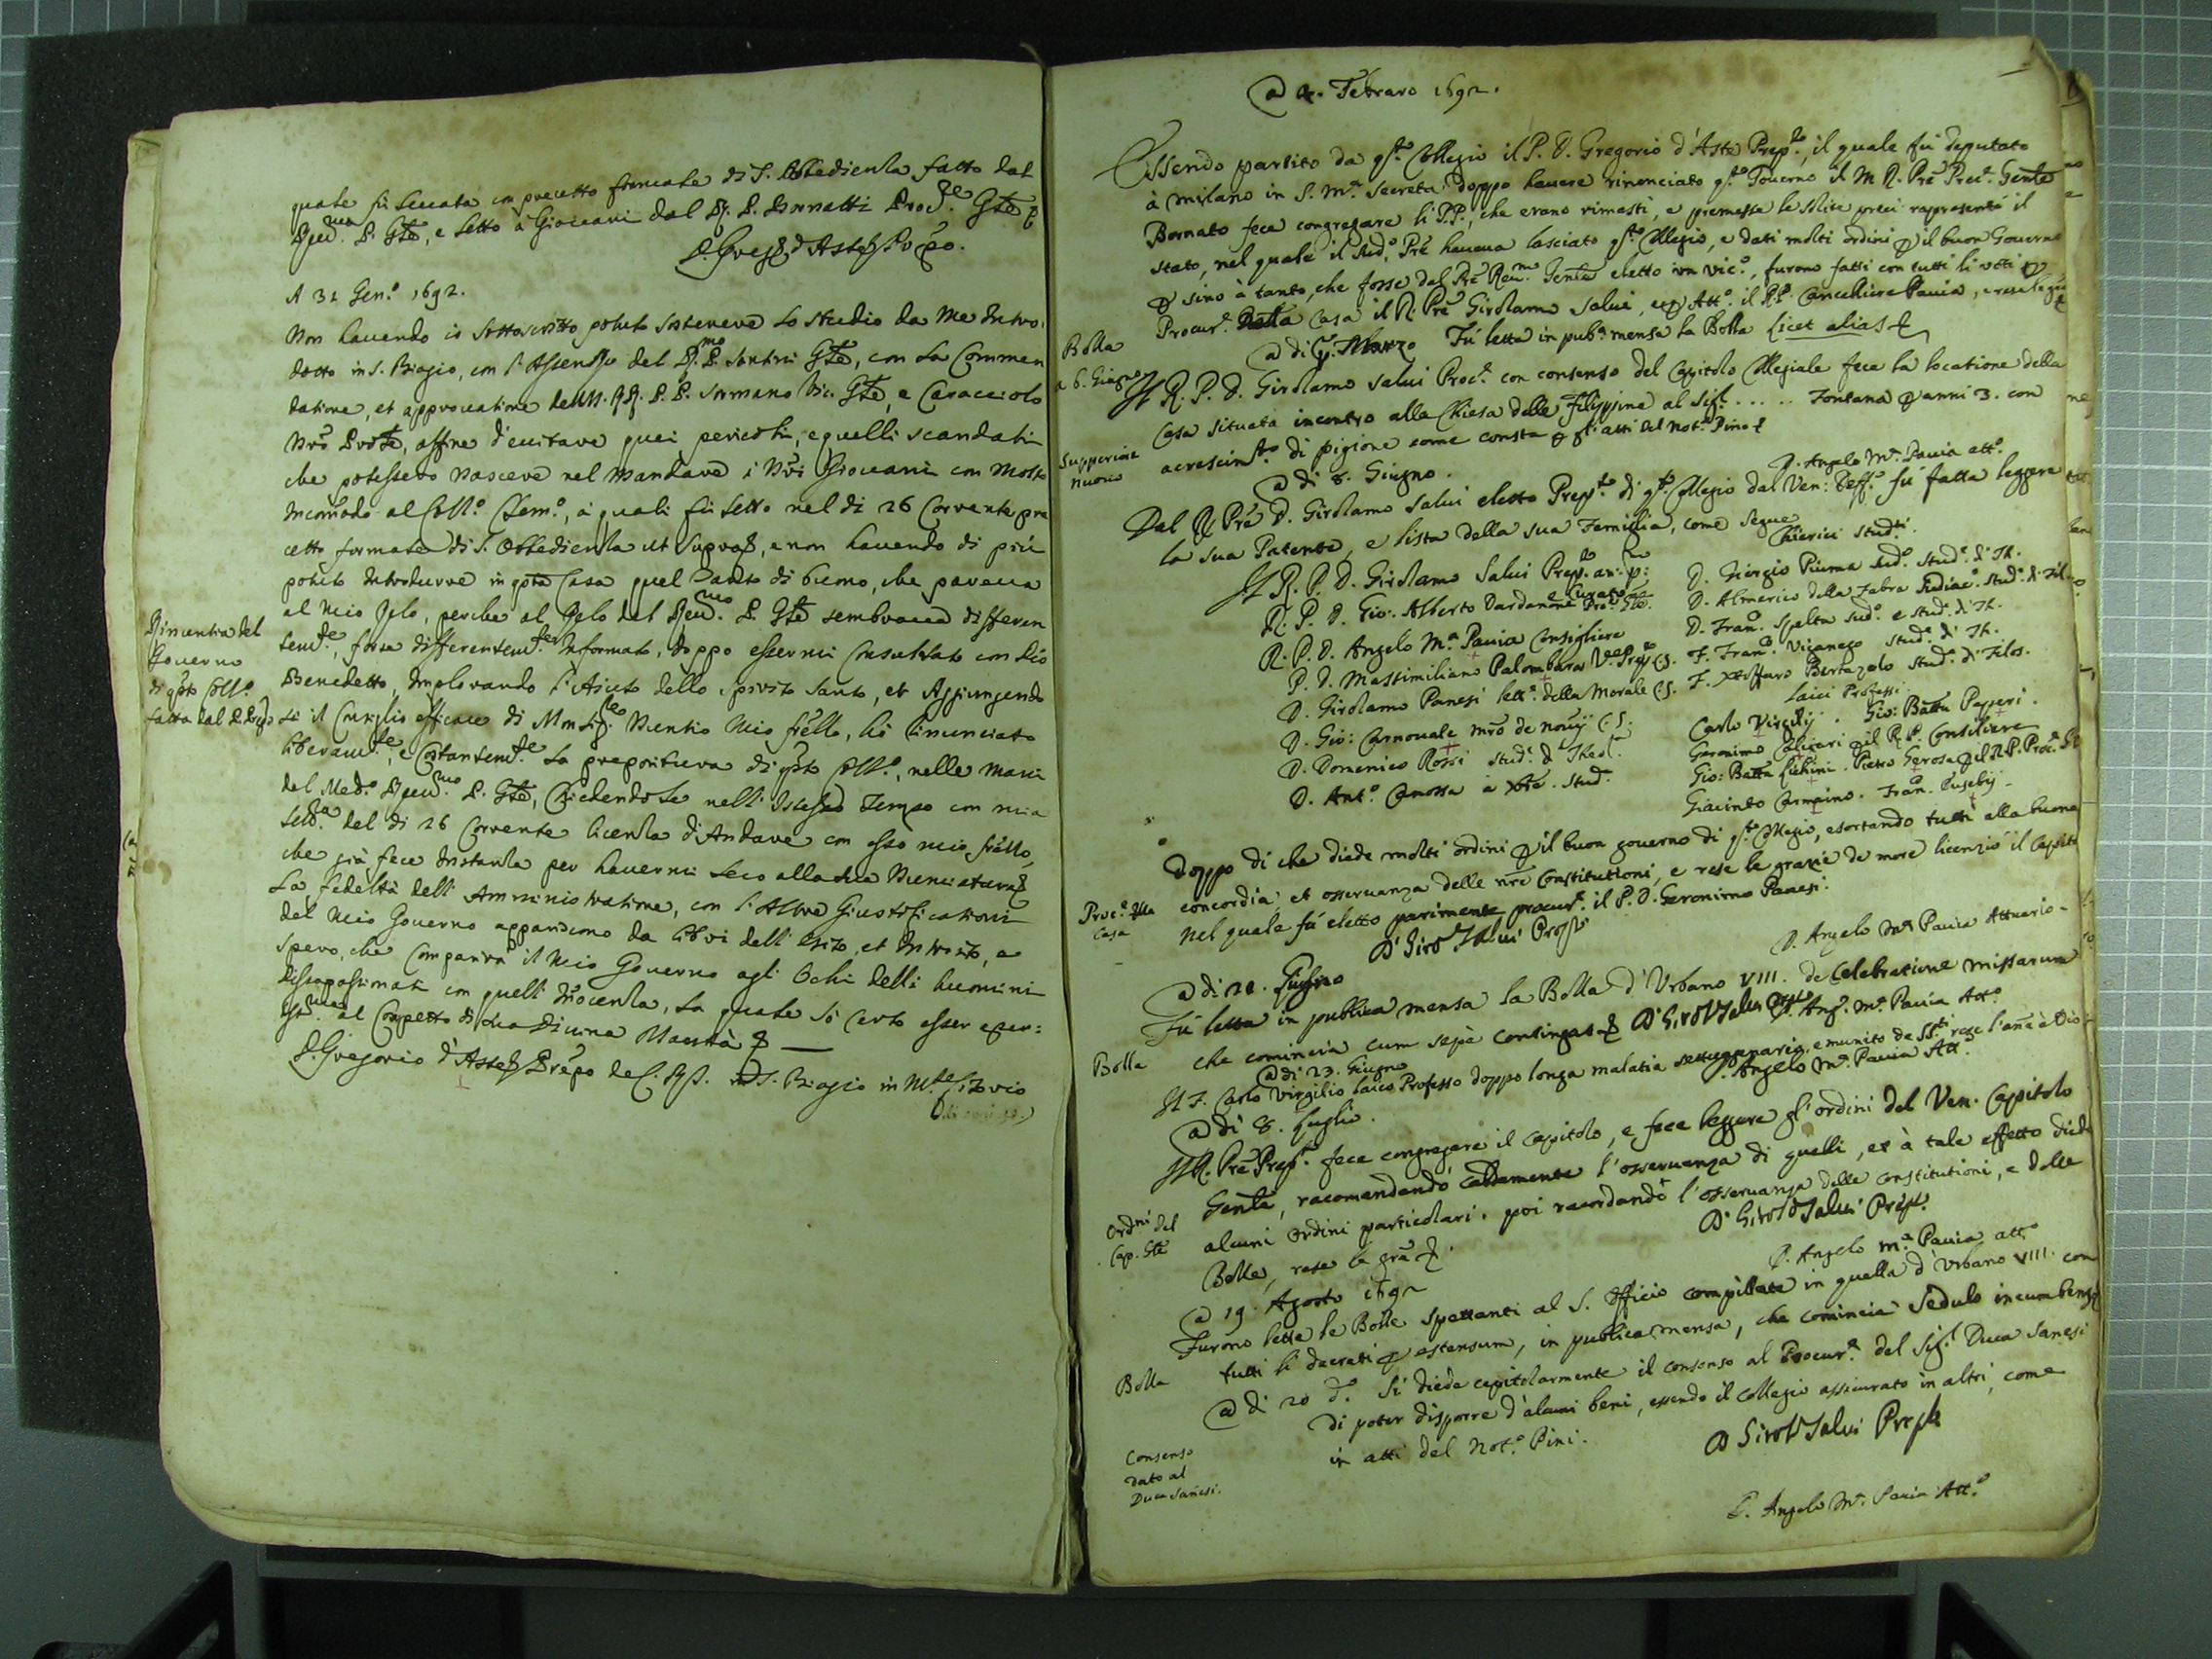 quale fù levata con precetto formale di S. Obbedienza fatto dal
Rev.mo P. Gñle, e letto a Giovani dal R. P. Bornatti Proc.re Gñle &
D. Greg.o d'Aste Prepo.
A 31 Gen.o 1692.
Non havendo io sottoscritto potuto sostenere lo studio da me intro-
dotto in S. Biagio, con l'Assenso del R.mo P. Santini Gñle, con la Commen
datione, et approvatione delli M. RR. P. P. Sormano Vic. Gñle, e Caracciolo
Nrõ Provle, affine d'evitare quei pericoli, e quelli scandali
che potessero nascere nel mandare i Nrĩ Giovani con molto
incommodo al Coll.o Clem.o, a quali fù letto nel di 26 Corrente pre
cetto formale di S. Obbedienza ut supra &, e non havendo di più
potuto introdurre in qsta Casa quel Santo di buono, che pareva
al mio Zelo, perche al Zelo del Rev.mo P. Gñle sembrava differen
tem.te, forse differentem.te informato, doppo essermi consultato con Dio
Benedetto, implorando l'Aiuto dello Spirito Santo, et Aggiungendo
Rinontia del
Governo
di qsto Coll.o
fatta dal P. Prep.o
si il Consiglio efficace di Monsig.r Nuntio mio frello, hò rinunciato
liberam.te, e Costantem.te la prepositura di qsto Coll.o, nelle mani
del Med.o Rev.mo P. Gñle, Chiedendole nell'istesso tempo con mia
lett.a del di 26 Corrente licenza d'Andare con esso mio frello,
che già fece instanza per havermi seco alla sua Nunciatura &
La fedeltà dell'Amministratione, con l'Altre Giustificationi
del mio Governo appariscono da libri dell'Esito, et Introito, e
spero, che comparirà il mio Governo agli Ochi delli huomini
disapassionati con quell'Inocenza, la quale sò certo esser
al Conspetto di Sua Divina Maestà &
D. Gregorio d'Aste Prepo de C. R. S. in S. Biagio in M.te Citorio
@ 4. Febraro 1692.
Essendo partito da qsto Collegio il P. D. Gregorio d'Aste Prep.to, il quale fù deputato
à Milano in S. M.a Secreta, doppo havere rinonciato qsto Governo il M. R. Prẽ Proc.r Gentle
Bornato fece congregare li PP., che erano rimasti, e premesse le solite preci rappresentò il
stato, nel quale il sud.o Prẽ haveva lasciato qsto Collegio, e dati molti ordini p il buon Governo
p sino à tanto, che fosse dal Prẽ Rev.mo Gentle eletto un vic.o, furono fatti con tutti li voti p
Procur.e della Casa il R. Prẽ Girolamo Salvi, et p Att.o il R. P. Cancelliere Pavia, e rese le gra
Bolla
@ di Marzo Fù letta in pub.a mensa la Bolla Licet alias &
a 6. Giugno
Il R. P. D. Girolamo Salvi Proc.e con consenso del Capitolo Collegiale fece la locatione della
Casa situata incontro alla Chiesa delle Filippine al Sig.r ..... Fontana p anni 3. con
acrescim.to di pigione come consta p gl'atti del Not.o Pino &
D. Angelo M.a Pavia att.o
Supperiore
nuovo
@ di 8. Giugno.
Dal R. Prẽ D. Girolamo Salvi eletto Prep.to di qsto Collegio dal Ven: Deff.o fù fatta leggere
la sua Patente, e lista della sua Famiglia, come segue
Chierici stud.ti
Il R. P. D. Girolamo Salvi Prep.to an: p.mo
D. Giorgio Piuma sud.o stud.e di Th.
R. P. D. Gio: Alberto Dardanone Curato Pro. Gle.
D. Almerico della Zabra sudiac.o stud.e di Fil.
R. P. D. Angelo M.a Pavia Consigliere
D. Fran.o Spelta sud.o e stud.e di Th.
P. D. Massimiliano Palombara V.e Prep.o C.S.
F. Fran.o Viganego stud.e di Th.
D. Girolamo Panesi lett.e della Morale C.S.
F. Xstoffaro Bertazolo stud.e di Filos.
Laici Professi
D. Gio: Carnovale Mrõ de novij C.S.
Carlo Virgilij. Gio: Batta Papperi.
D. Domenico Rossi Stud.e d Theol.
Geronimo Caligari p il R. P. Consiliere
D. Ant.o Canossa Stud.
Gio: Batta Lichini. Pietro Gerosa p il R. P. Proc.e Gle
Giacinto Carmaino. Fran.o Eusebij.
Doppo di che diede molti ordini p il buon governo di qsto Collegio, esortando tutti alla buona
concordia, et osservanza delle nrẽ Constitutioni, e rese le grazie de more licenziò il Capitolo
Proc.e della
Casa
nel quale fù eletto parimente procur.e il P. D. Geronimo Panesi.
D. Girol.o Salvi Prep.to
D. Angelo M.a Pavia Attuario.
@ di 22. Giugno
Bolla
Fù letta in publica mensa la Bolla d'Urbano VIII. de Celebratione Missarum
che comincia cum sępè contingat & D. Girol.o Salvi Prep.to
D. Ang.o M.a Pavia Att.o
@ di 23. Giugno
Il F. Carlo Virgilio laico Professo doppo longa malatia settuagenario, e munito de SS.ti rese l'anĩa à Dio
D. Angelo M.a Pavia Att.o
@ di 8. Luglio.
Il R. Prẽ Prep.to fece congregare il Capitolo, e fece leggere gl'ordini del Ven. Capitolo
Ordini del
Cap. Gle
Gentle, racomandando caldamente l'osservanza di quelli, et à tale effetto diede
alcuni ordini particolari. poi racordando l'osservanza delle constitutioni, e delle
Bolle, rese le grã &.
D. Girol.o Salvi Prep.to
D. Angelo M.a Pavia att.o
@ 19. Agosto 1692
Bolla
Furono lette le Bolle spettanti al S. Officio compillate in quella d'Urbano VIII. con
tutti li decreti p estensum, in publica mensa, che comincia Sedulo incumbentes
Consenso
dato al
Duca Sanesi.
@ di 20 d.o Si diede capitolarmente il consenso al Procur.e del Sig.r Duca Sanesi
di poter disporre d'alcuni beni, essendo il Collegio assicurato in altri, come
in atti del Not.o Pini.
D. Girol.o Salvi Prep.to
D. Angelo M.a Pavia Att.o